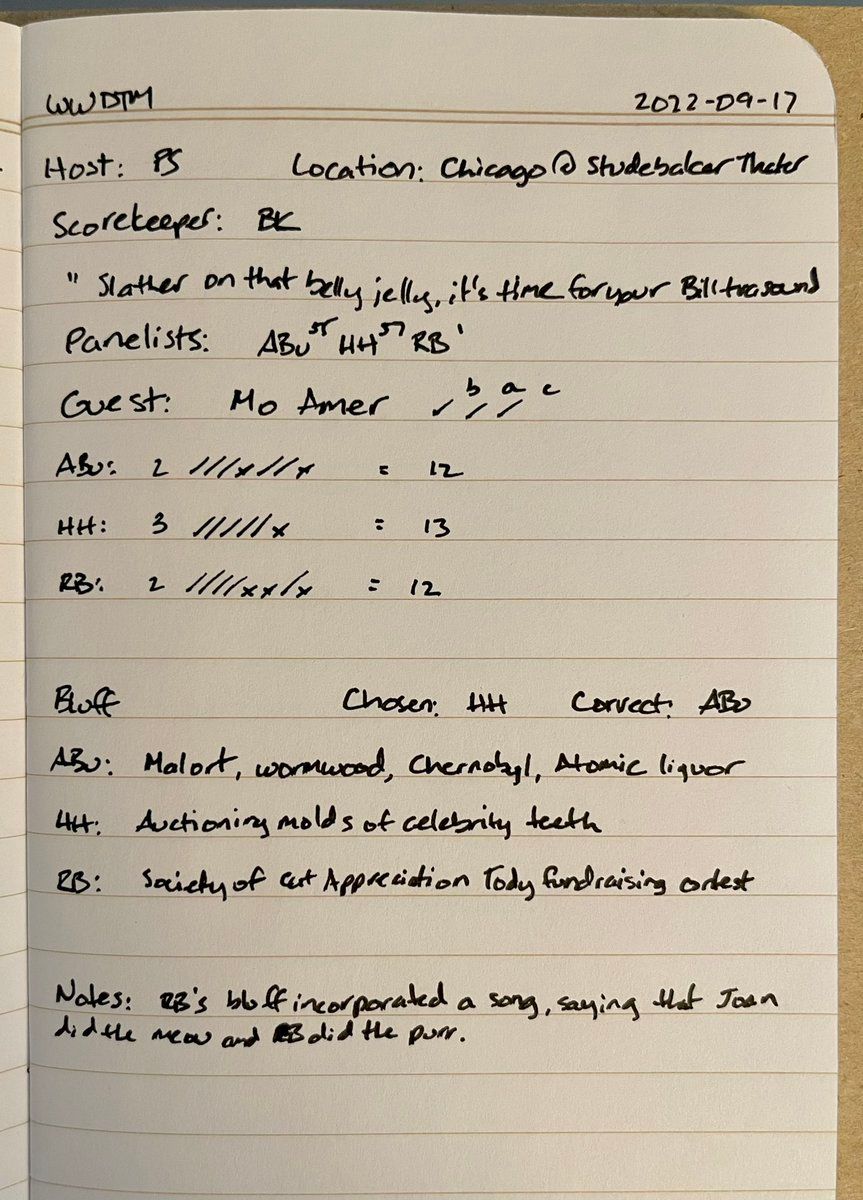 WWDTM 2022-09-17
Host: PS Location: Chicago @ Studebaker Theater
Scorekeeper: BK
" Slather on that belly jelly, it's time for your Billtrasound
Panelists: ABu 55 HH 57 RB 1
Guest: Mo Amer ✓ b/ a/ c
ABu: 2 ///x//x = 12
HH: 3 /////x = 13
RB: 2 ////xx/x = 12
Bluff Chosen: HH Correct: ABu
ABu: Malort, wormwood, Chernobyl, Atomic liquor
HH: Auctioning molds of celebrity teeth
RB: Society of Cat Appreciation Today fundraising contest
Notes: RB's bluff incorporated a song, saying that Joan
did the meow and RB did the purr.